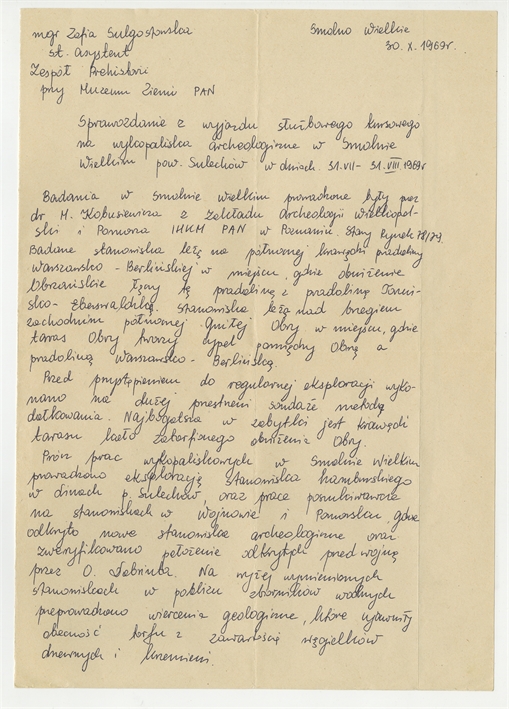 mgr Zofia Sulgostowska
Smolno Wielkie
30. X. 1969r.
st. asystent
Zespół Prehistorii
przy Muzeum Ziemi PAN
Sprawozdanie z wyjazdu służbowego kursowego
na wykopaliska archeologiczne w Smolnie
Wielkim pow. Sulechów w dniach 31.VII - 31.VIII.1969r
Badania w Smolnie Wielkim prowadzone były przez
dr M. Kobusiewicza z Zakładu Archeologii Wielkopol-
ski i Pomorza IHKM PAN w Poznaniu. Stary Rynek 78/79.
Badane stanowiska leżą na północnej krawędzi pradoliny
Warszawsko - Berlińskiej w miejscu, gdzie obniżenie
Obrzańskie łączy tę pradolinę z pradoliną Toruń-
sko - Eberswaldzką. Stanowiska leżą nad brzegiem
zachodnim północnej Gniłej Obry w miejscu, gdzie
taras Obry tworzy cypel pomiędzy Obrą a
pradoliną Warszawsko - Berlińską.
Przed przystąpieniem do regularnej eksploracji wyko-
nano na dużej przestrzeni sondaże metodą
dołkowania. Najbogatsza w zabytki jest krawędź
tarasu koło zatorfionego obniżenia Obry.
Prócz prac wykopaliskowych w Smolnie Wielkim
prowadzono eksplorację stanowiska hamburskiego
w Linach p. Sulechów, oraz prace poszukiwawcze
na stanowiskach w Wojnowie i Pomorsku, gdzie
odkryto nowe stanowiska archeologiczne oraz
zweryfikowano położenie odkrytych przed wojną
przez O. Na wyżej wymienionych
stanowiskach w pobliżu zbiorników wodnych
przeprowadzono wiercenia geologiczne, które ujawniły
obecność torfu z zawartością węgielków
drzewnych i krzemieni.